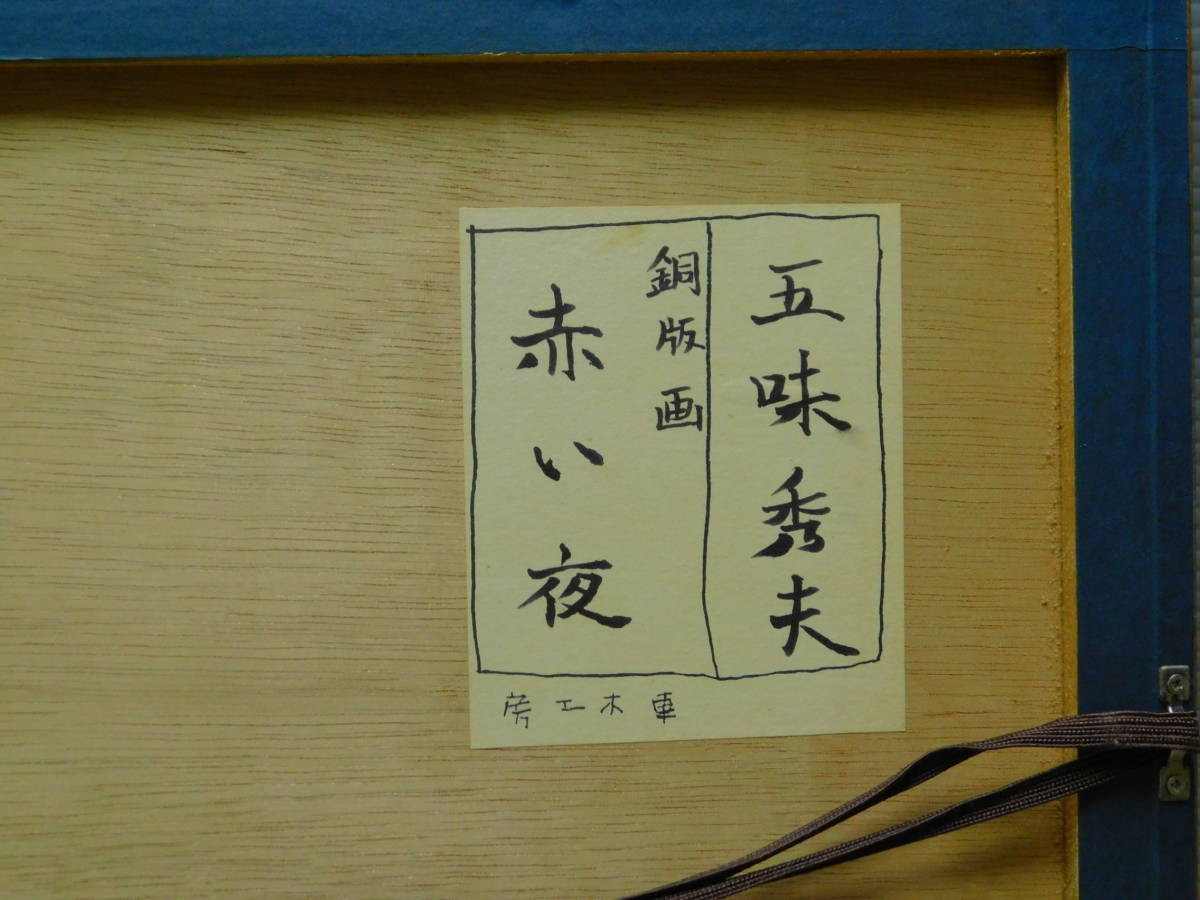 五味秀夫
銅版画
赤い夜
房工木車